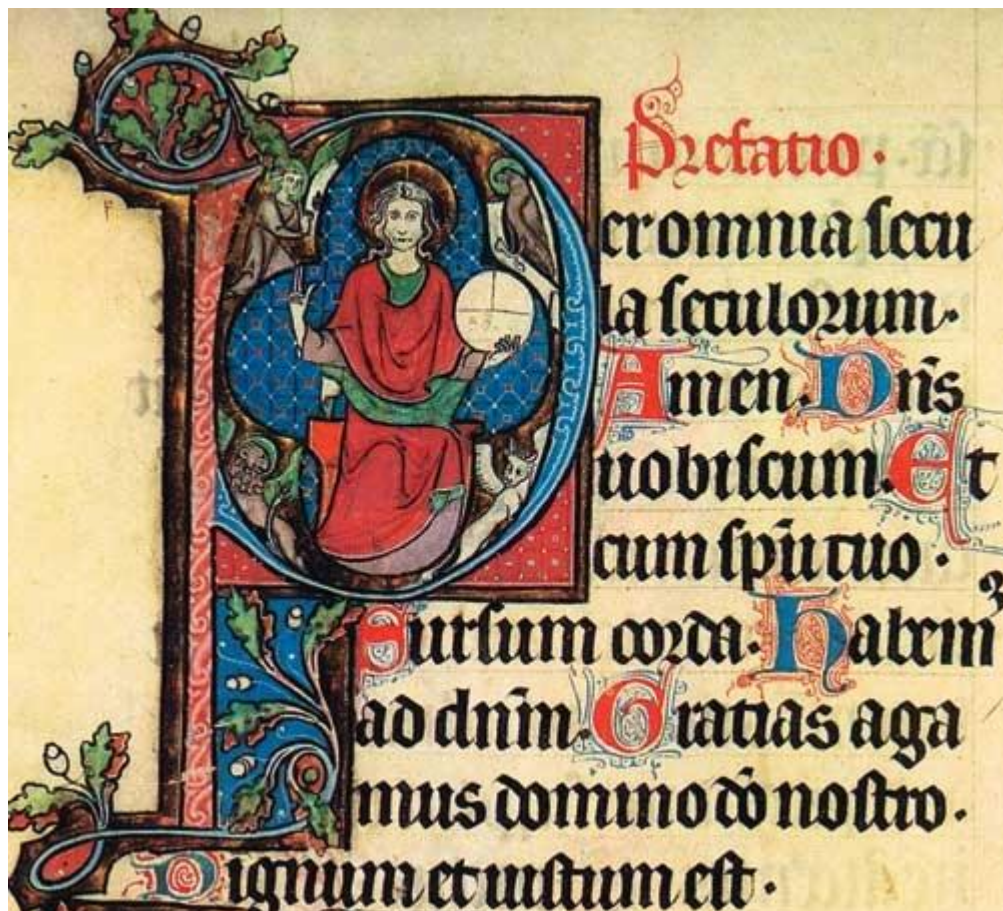 Prefatio.
Per omnia secu
la seculorum.
Amen. Dn̄s
uobiscum. Et
cum sp̄u tuo.
Sursum corda. Habemꝰ
ad dn̄m. Gratias aga
mus domino dō nostro.
Dignum et iustum est.